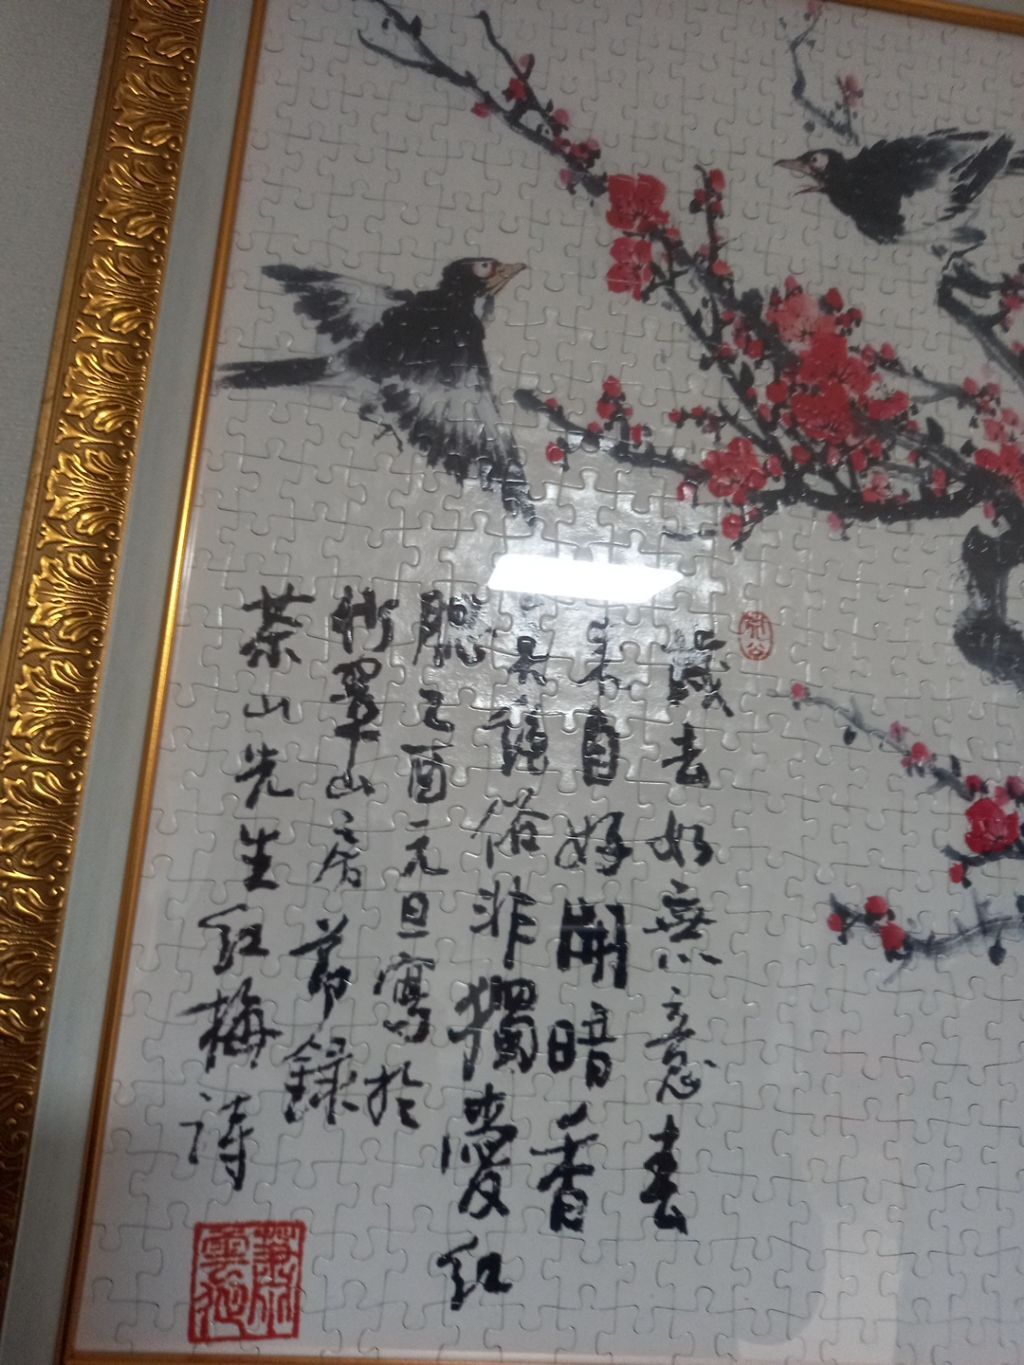 歲去如無意春
来自好開暗香
絶俗非獨愛紅
腮己酉元旦寫於
翠山房節錄
茶山先生紅梅詩